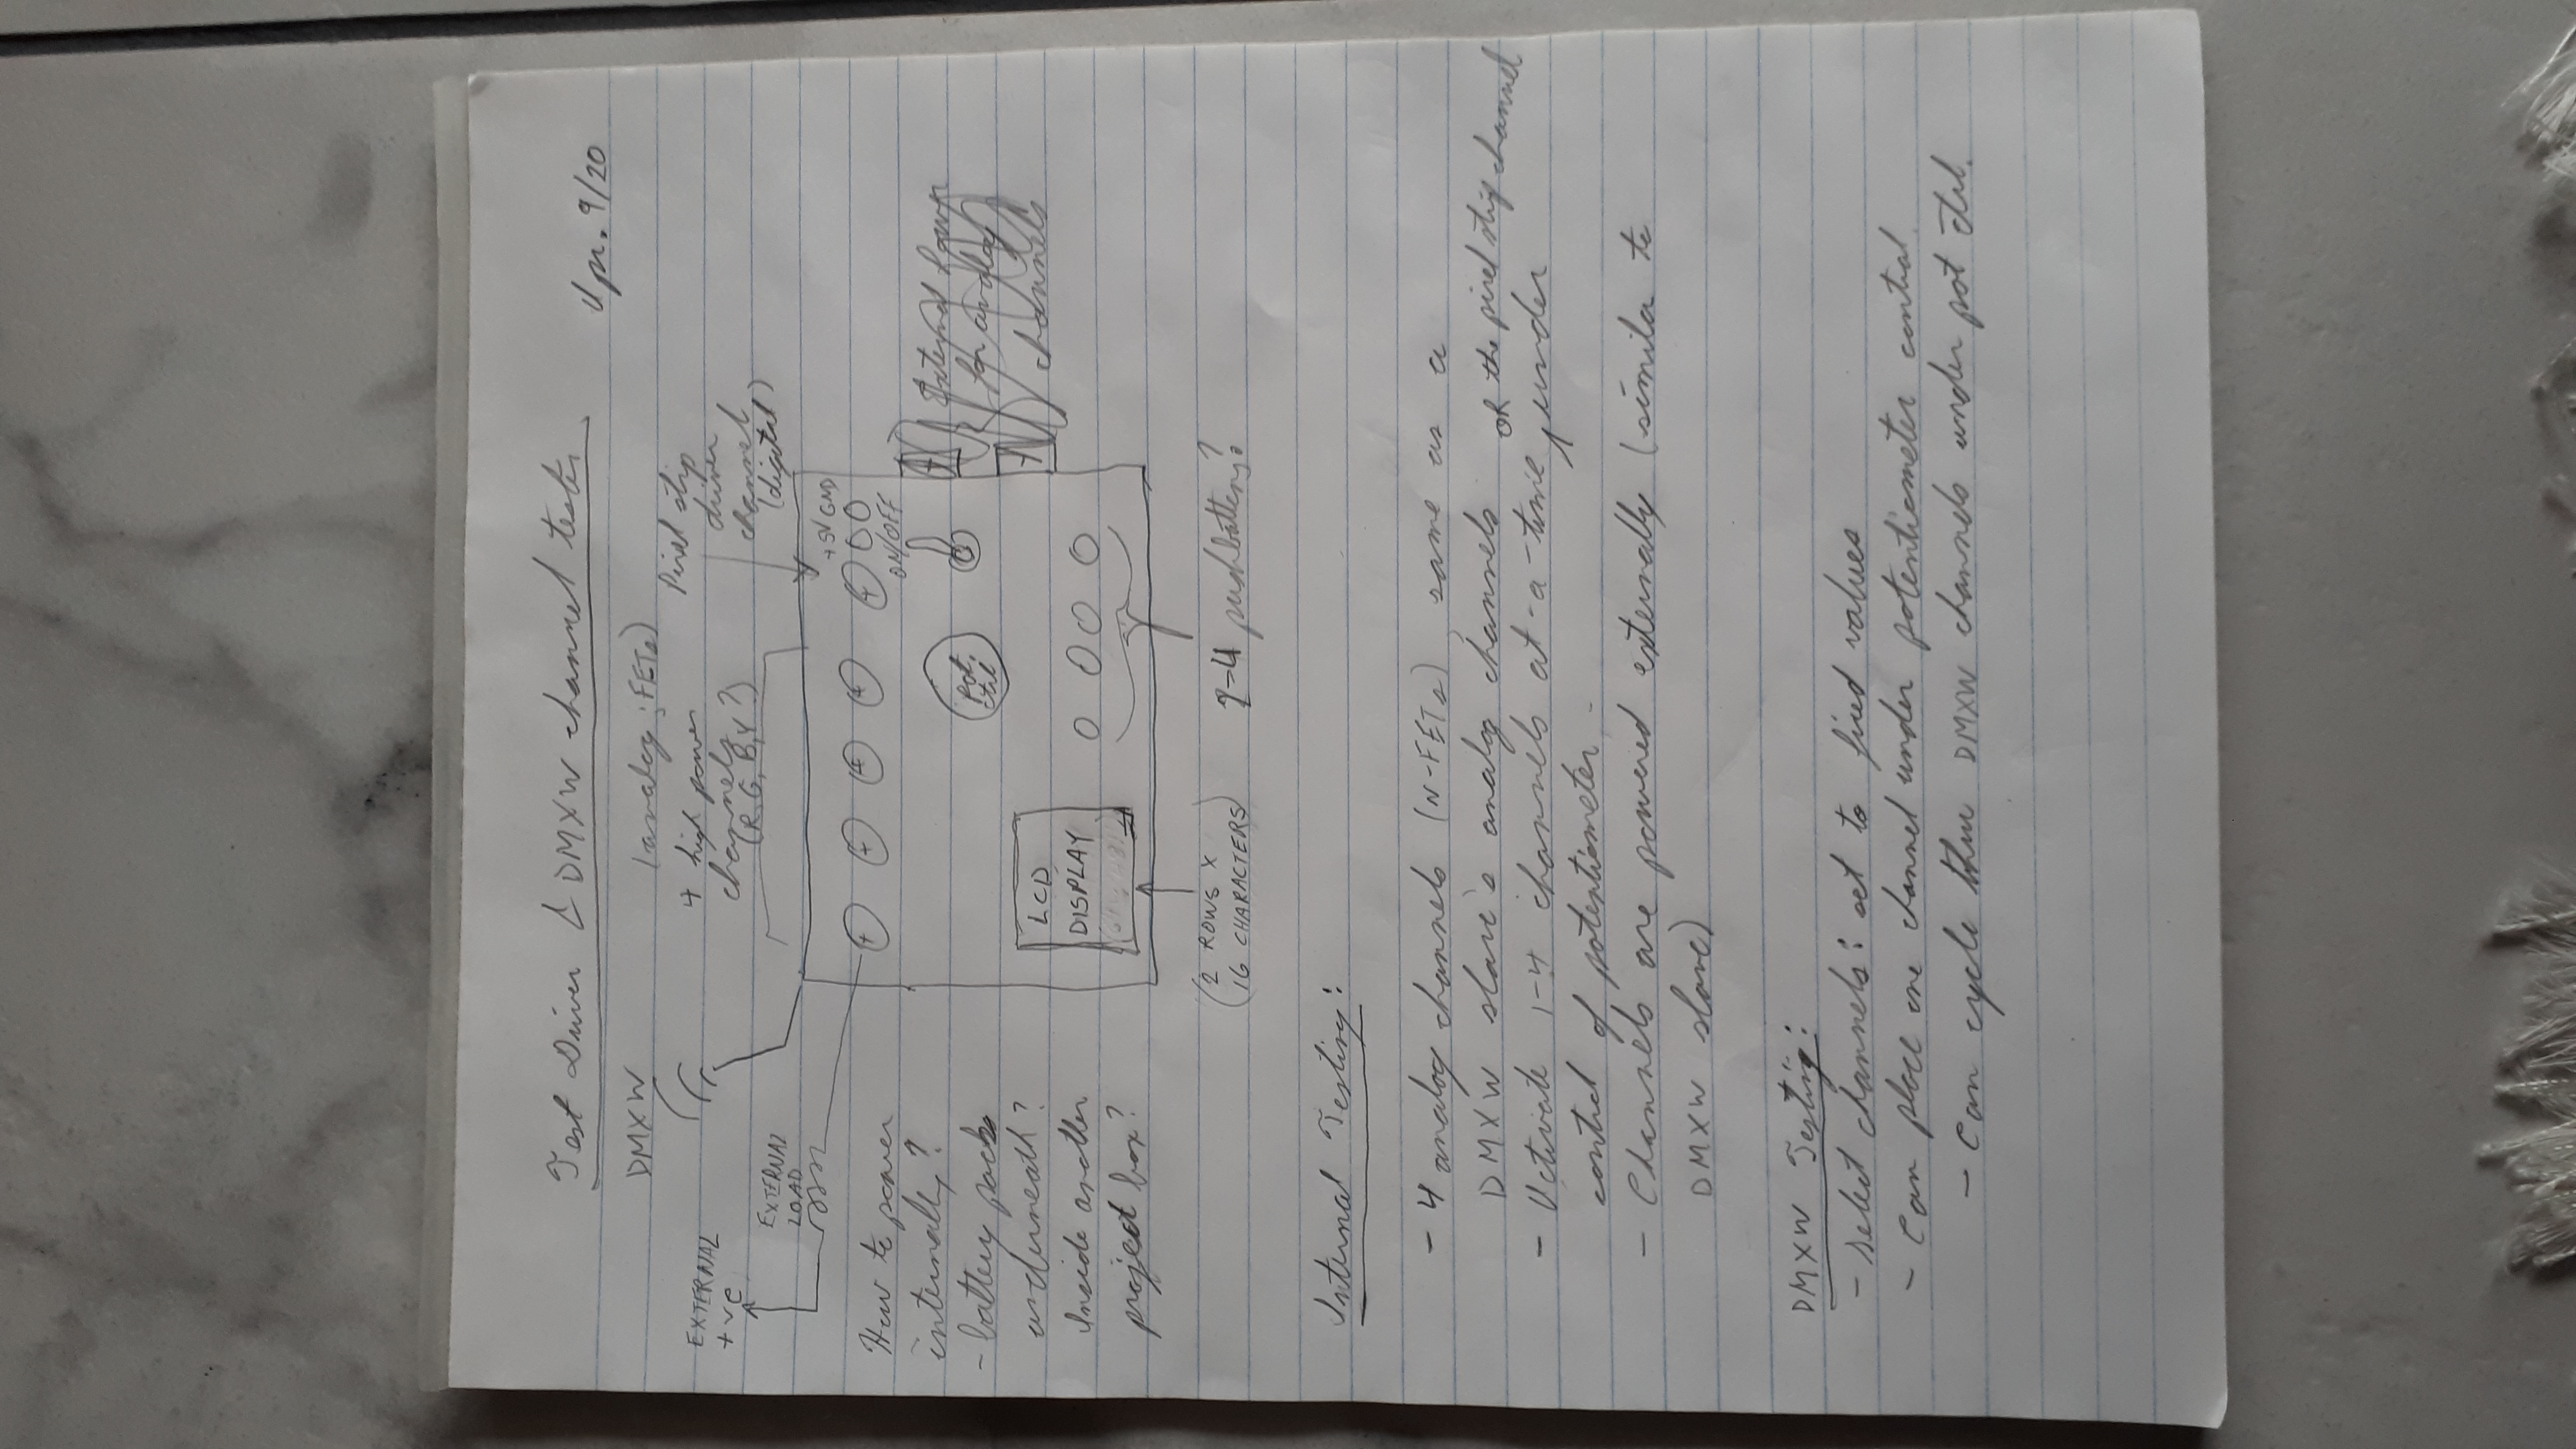 Test Driver & DMXW channel tester
Apr. 9/20
DMXW
(analog; FETs)
4 high power
channels
(R, G, B, Y?)
Pixel strip
driver
channel
(digital)
EXTERNAL
+ve
EXTERNAL
LOAD
+5V GND
ON/OFF
How to power
internally?
- battery packs
underneath?
Inside another
project box?
pot.
ctrl
External Power
for analog
channels
LCD
DISPLAY
(2 ROWS X
16 CHARACTERS)
2-4 pushbuttons?
Internal Testing:
- 4 analog channels (N-FETs), same as a
DMXW slave's analog channels
or the pixel strip channel
- Activate 1-4 channels at-a-time, under
control of potentiometer.
- Channels are powered externally (similar to
DMXW slave)
DMXW Testing:
- Select channels: set to fixed values
- Can place one channel under potentiometer control.
- Can cycle thru DMXW channels under pot ctrl.